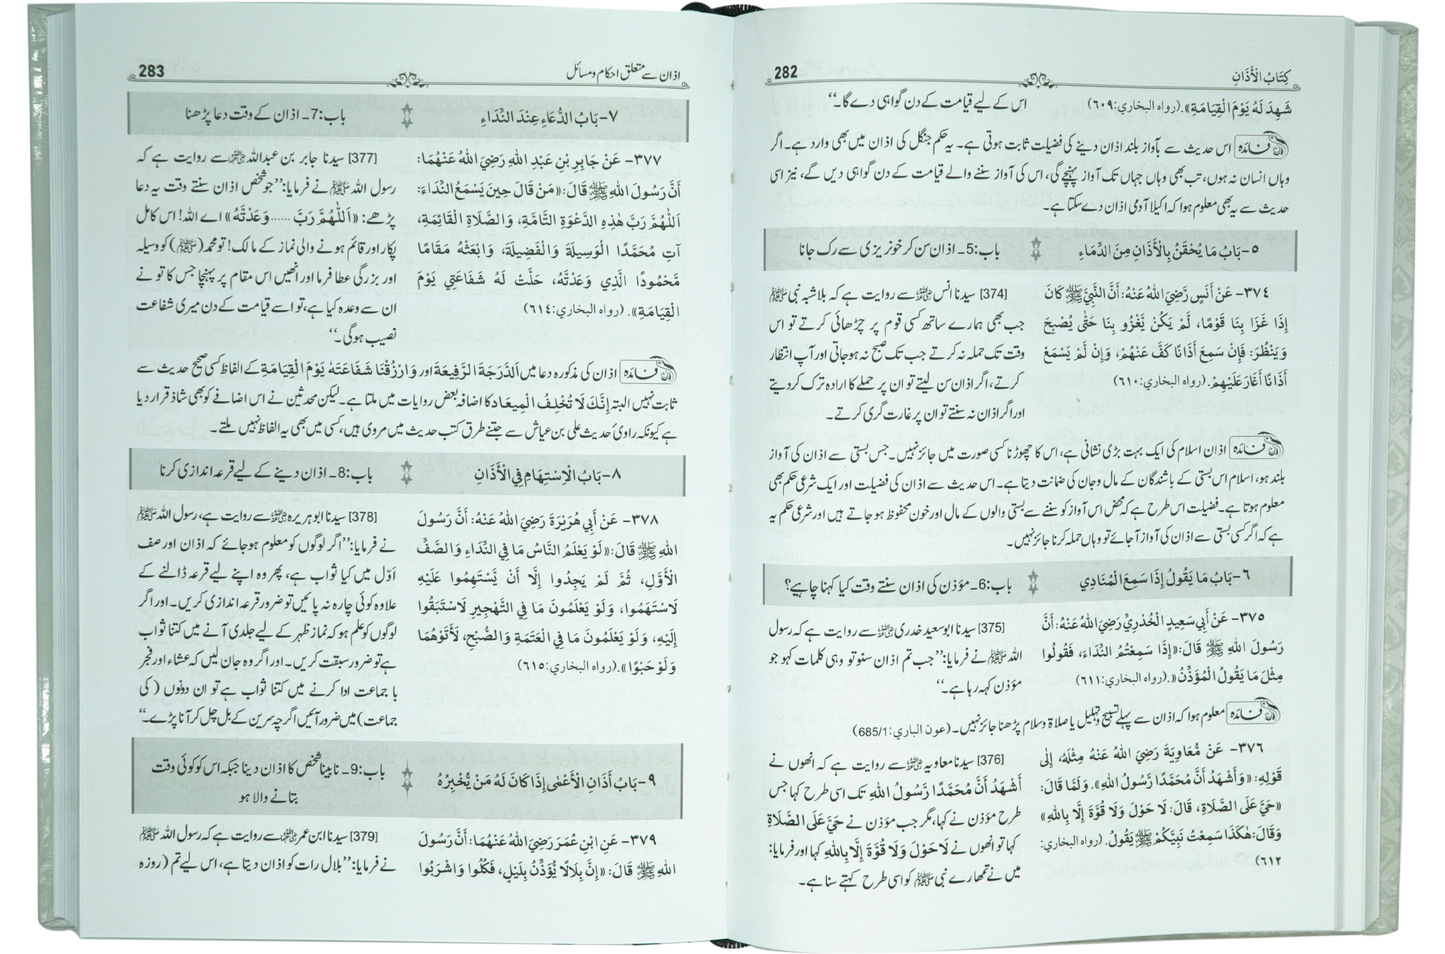 282
کِتَابُ الْأَذَانِ
شَهِدَ لَهُ يَوْمَ الْقِيَامَةِ». (رواه البخاري: ٦٠٩)
اس کے لیے قیامت کے دن گواہی دے گا۔‘‘
فائدہ اس حدیث سے بآواز بلند اذان دینے کی فضیلت ثابت ہوتی ہے۔ یہ حکم جنگل کی اذان میں بھی وارد ہے۔ اگر
وہاں انسان نہ ہوں، تب بھی وہاں جہاں تک آواز پہنچے گی، اس کی آواز سننے والے قیامت کے دن گواہی دیں گے، نیز اسی
حدیث سے یہ بھی معلوم ہوا کہ اکیلا آدمی اذان دے سکتا ہے۔
٥- بَابُ مَا يُحْقَنُ بِالْأَذَانِ مِنَ الدِّمَاءِ
باب: 5۔ اذان سن کر خونریزی سے رک جانا
٣٧٤- عَنْ أَنَسٍ رَّضِيَ اللهُ عَنْهُ: أَنَّ النَّبِيَّ ﷺ كَانَ
إِذَا غَزَا بِنَا قَوْمًا، لَمْ يَكُنْ يَغْزُو بِنَا حَتَّى يُصْبِحَ
وَيَنْظُرَ: فَإِنْ سَمِعَ أَذَانًا كَفَّ عَنْهُمْ، وَإِنْ لَمْ يَسْمَعْ
أَذَانًا أَغَارَ عَلَيْهِمْ. (رواه البخاري: ٦١٠)
[374] سیدنا انس ؓ سے روایت ہے کہ بلاشبہ نبی ﷺ
جب بھی ہمارے ساتھ کسی قوم پر چڑھائی کرتے تو اس
وقت تک حملہ نہ کرتے جب تک صبح نہ ہو جاتی اور آپ انتظار
کرتے، اگر اذان سن لیتے تو ان پر حملے کا ارادہ ترک کر دیتے
اور اگر اذان نہ سنتے تو ان پر غارت گری کرتے۔
فائدہ اذان اسلام کی ایک بہت بڑی نشانی ہے، اس کا چھوڑنا کسی صورت میں جائز نہیں۔ جس بستی سے اذان کی آواز
بلند ہو، اسلام اس بستی کے باشندگان کے مال و جان کی ضمانت دیتا ہے۔ اس حدیث سے اذان کی فضیلت اور ایک شرعی حکم بھی
معلوم ہوتا ہے۔ فضیلت اس طرح ہے کہ محض اس آواز کو سننے سے بستی والوں کے مال اور خون محفوظ ہو جاتے ہیں اور شرعی حکم یہ
ہے کہ اگر کسی بستی سے اذان کی آواز آ جائے تو وہاں حملہ کرنا جائز نہیں۔
٦- بَابُ مَا يَقُولُ إِذَا سَمِعَ الْمُنَادِي
باب: 6۔ مؤذن کی اذان سنتے وقت کیا کہنا چاہیے؟
٣٧٥- عَنْ أَبِي سَعِيدٍ الْخُدْرِيِّ رَضِيَ اللهُ عَنْهُ: أَنَّ
رَسُولَ اللهِ ﷺ قَالَ: «إِذَا سَمِعْتُمُ النِّدَاءَ، فَقُولُوا
مِثْلَ مَا يَقُولُ الْمُؤَذِّنُ». (رواه البخاري: ٦١١)
[375] سیدنا ابوسعید خدری ؓ سے روایت ہے کہ رسول
اللہ ﷺ نے فرمایا: ’’جب تم اذان سنو تو وہی کلمات کہو جو
مؤذن کہہ رہا ہے۔‘‘
فائدہ معلوم ہوا کہ اذان سے پہلے تسبیح و تہلیل یا صلاۃ و سلام پڑھنا جائز نہیں۔ (عون الباري: 685/1)
٣٧٦- عَنْ مُّعَاوِيَةَ رَضِيَ اللهُ عَنْهُ مِثْلَهُ، إِلَى
قَوْلِهِ: «وَأَشْهَدُ أَنَّ مُحَمَّدًا رَّسُولُ اللهِ». وَلَمَّا قَالَ:
«حَيَّ عَلَى الصَّلَاةِ، قَالَ: لَا حَوْلَ وَلَا قُوَّةَ إِلَّا بِاللهِ»
وَقَالَ: هٰكَذَا سَمِعْتُ نَبِيَّكُمْ ﷺ يَقُولُ. (رواه البخاري:
٦١٢)
[376] سیدنا معاویہ ؓ سے روایت ہے کہ انھوں نے
أَشْهَدُ أَنَّ مُحَمَّدًا رَّسُولُ اللهِ تک اسی طرح کہا جس
طرح مؤذن نے کہا، مگر جب مؤذن نے حَيَّ عَلَى الصَّلَاةِ
کہا تو انھوں نے لَا حَوْلَ وَلَا قُوَّةَ إِلَّا بِاللهِ کہا اور فرمایا:
میں نے تمھارے نبی ﷺ کو اسی طرح کہتے سنا ہے۔
283
اذان سے متعلق احکام و مسائل
٧- بَابُ الدُّعَاءِ عِنْدَ النِّدَاءِ
باب: 7۔ اذان کے وقت دعا پڑھنا
٣٧٧- عَنْ جَابِرِ بْنِ عَبْدِ اللهِ رَضِيَ اللهُ عَنْهُمَا:
أَنَّ رَسُولَ اللهِ ﷺ قَالَ: «مَنْ قَالَ حِينَ يَسْمَعُ النِّدَاءَ:
اَللّٰهُمَّ رَبَّ هٰذِهِ الدَّعْوَةِ التَّامَّةِ، وَالصَّلَاةِ الْقَائِمَةِ،
آتِ مُحَمَّدًا الْوَسِيلَةَ وَالْفَضِيلَةَ، وَابْعَثْهُ مَقَامًا
مَّحْمُودًا الَّذِي وَعَدْتَّهُ، حَلَّتْ لَهُ شَفَاعَتِي يَوْمَ
الْقِيَامَةِ». (رواه البخاري: ٦١٤)
[377] سیدنا جابر بن عبداللہ ؓ سے روایت ہے کہ
رسول اللہ ﷺ نے فرمایا: ’’جو شخص اذان سنتے وقت یہ دعا
پڑھے: «اَللّٰهُمَّ رَبَّ ...... وَعَدْتَّهُ» اے اللہ! اس کامل
پکار اور قائم ہونے والی نماز کے مالک! تو محمد (ﷺ) کو وسیلہ
اور بزرگی عطا فرما اور انھیں اس مقام پر پہنچا جس کا تو نے
ان سے وعدہ کیا ہے، تو اسے قیامت کے دن میری شفاعت
نصیب ہوگی۔‘‘
فائدہ اذان کی مذکورہ دعا میں اَلدَّرَجَةَ الرَّفِيعَةَ اور وَارْزُقْنَا شَفَاعَتَهُ يَوْمَ الْقِيَامَةِ کے الفاظ کسی صحیح حدیث سے
ثابت نہیں البتہ إِنَّكَ لَا تُخْلِفُ الْمِيعَادَ کا اضافہ بعض روایات میں ملتا ہے۔ لیکن محدثین نے اس اضافے کو بھی شاذ قرار دیا
ہے کیونکہ راویٔ حدیث علی بن عیاش سے جتنے طرق کتب حدیث میں مروی ہیں، کسی میں بھی یہ الفاظ نہیں ملتے۔
٨- بَابُ الْاِسْتِهَامِ فِي الْأَذَانِ
باب: 8۔ اذان دینے کے لیے قرعہ اندازی کرنا
٣٧٨- عَنْ أَبِي هُرَيْرَةَ رَضِيَ اللهُ عَنْهُ: أَنَّ رَسُولَ
اللهِ ﷺ قَالَ: «لَوْ يَعْلَمُ النَّاسُ مَا فِي النِّدَاءِ وَالصَّفِّ
الْأَوَّلِ، ثُمَّ لَمْ يَجِدُوا إِلَّا أَنْ يَّسْتَهِمُوا عَلَيْهِ
لَاسْتَهَمُوا، وَلَوْ يَعْلَمُونَ مَا فِي التَّهْجِيرِ لَاسْتَبَقُوا
إِلَيْهِ، وَلَوْ يَعْلَمُونَ مَا فِي الْعَتَمَةِ وَالصُّبْحِ، لَأَتَوْهُمَا
وَلَوْ حَبْوًا». (رواه البخاري: ٦١٥)
[378] سیدنا ابو ہریرہ ؓ سے روایت ہے، رسول اللہ ﷺ
نے فرمایا: ’’اگر لوگوں کو معلوم ہو جائے کہ اذان اور صف
اوّل میں کیا ثواب ہے، پھر وہ اپنے لیے قرعہ ڈالنے کے
علاوہ کوئی چارہ نہ پائیں تو ضرور قرعہ اندازی کریں۔ اور اگر
لوگوں کو علم ہو کہ نماز ظہر کے لیے جلدی آنے میں کتنا ثواب
ہے تو ضرور سبقت کریں۔ اور اگر وہ جان لیں کہ عشاء اور فجر
با جماعت ادا کرنے میں کتنا ثواب ہے تو ان دونوں (کی
جماعت) میں ضرور آئیں اگرچہ سرین کے بل چل کر آنا پڑے۔‘‘
٩- بَابُ أَذَانِ الْأَعْمٰى إِذَا كَانَ لَهُ مَنْ يُّخْبِرُهُ
باب: 9۔ نابینا شخص کا اذان دینا جبکہ اس کو کوئی وقت
بتانے والا ہو
٣٧٩- عَنِ ابْنِ عُمَرَ رَضِيَ اللهُ عَنْهُمَا: أَنَّ رَسُولَ
اللهِ ﷺ قَالَ: «إِنَّ بِلَالًا يُّؤَذِّنُ بِلَيْلٍ، فَكُلُوا وَاشْرَبُوا
[379] سیدنا ابن عمر ؓ سے روایت ہے کہ رسول اللہ ﷺ
نے فرمایا: ’’بلال رات کو اذان دیتا ہے، اس لیے تم (روزہ